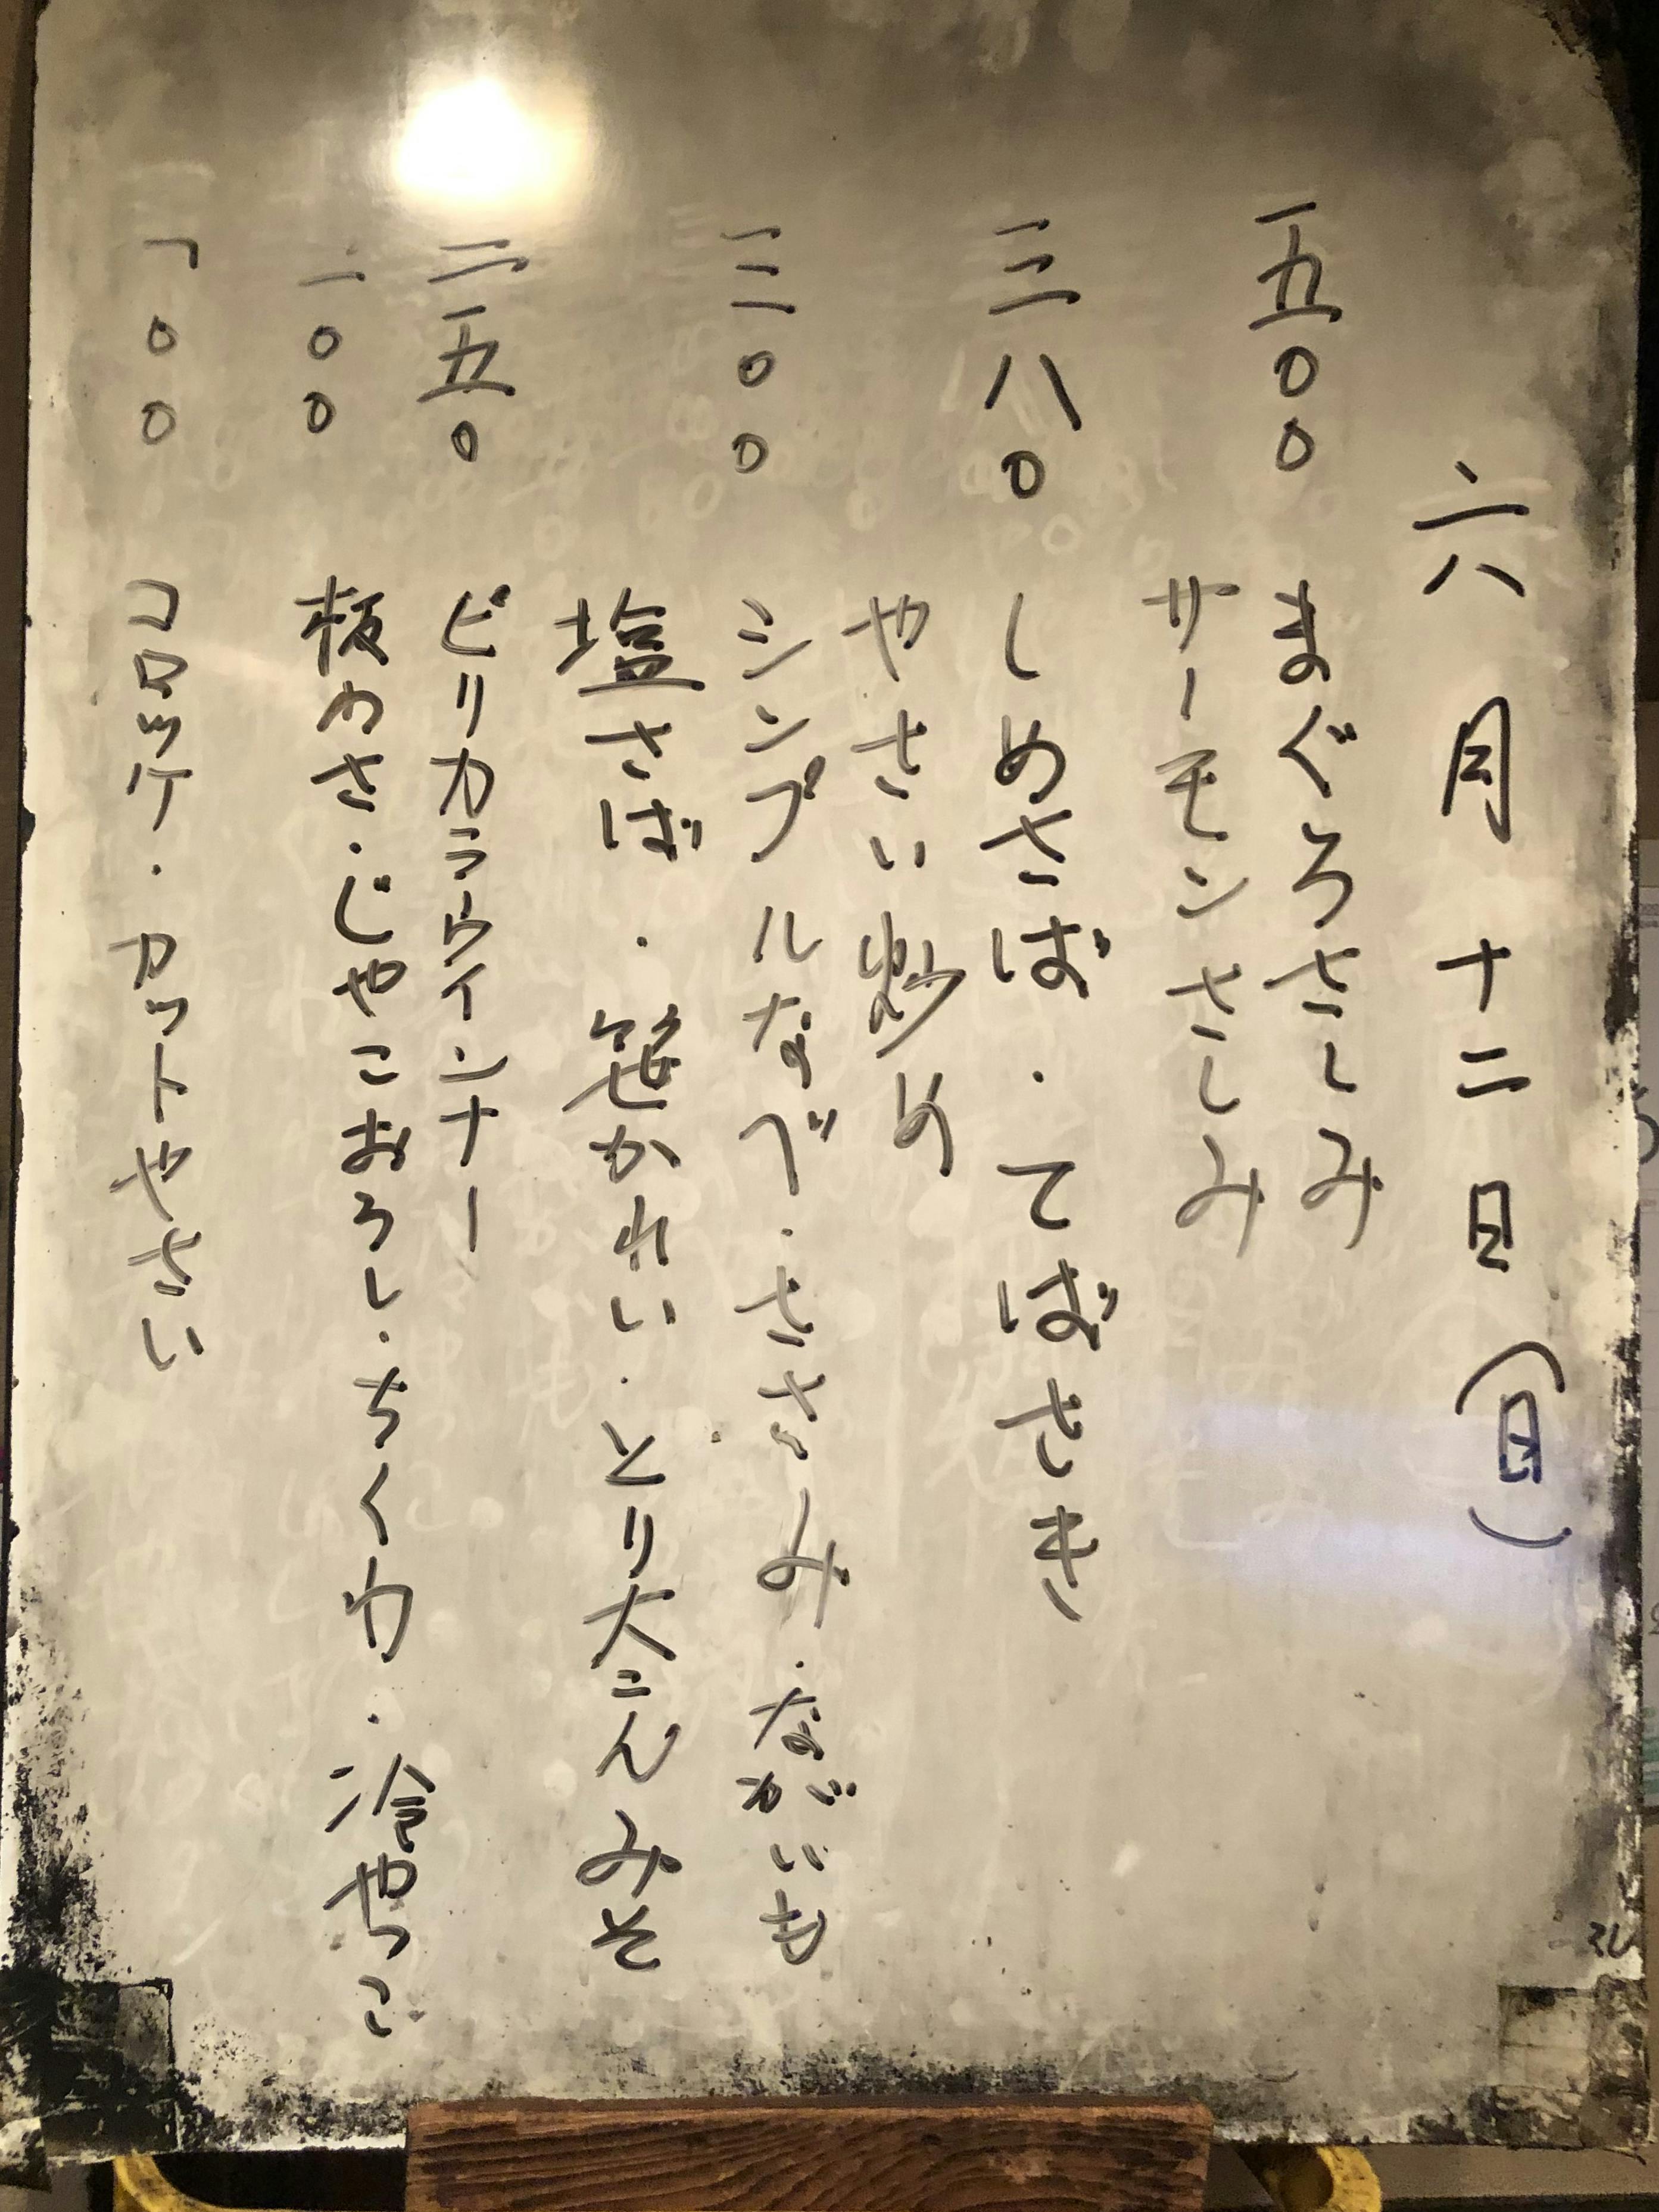 六月十二日(日)
五〇〇 まぐろさしみ
サーモンさしみ
三八〇 しめさば・てばさき
やさい炒め
三〇〇 シンプルなべ・ささみ・ながいも
塩さば・笹かれい・とり大こんみそ
二五〇 ピリカラウインナー
二〇〇 板わさ・じゃこおろし・ちくわ・冷やっこ
一〇〇 コロッケ・カットやさい